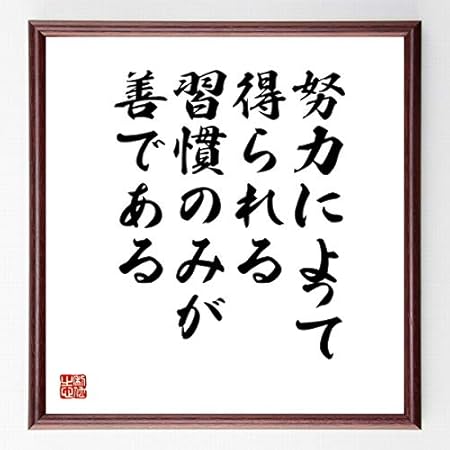 努力によって
得られる
習慣のみが
善である